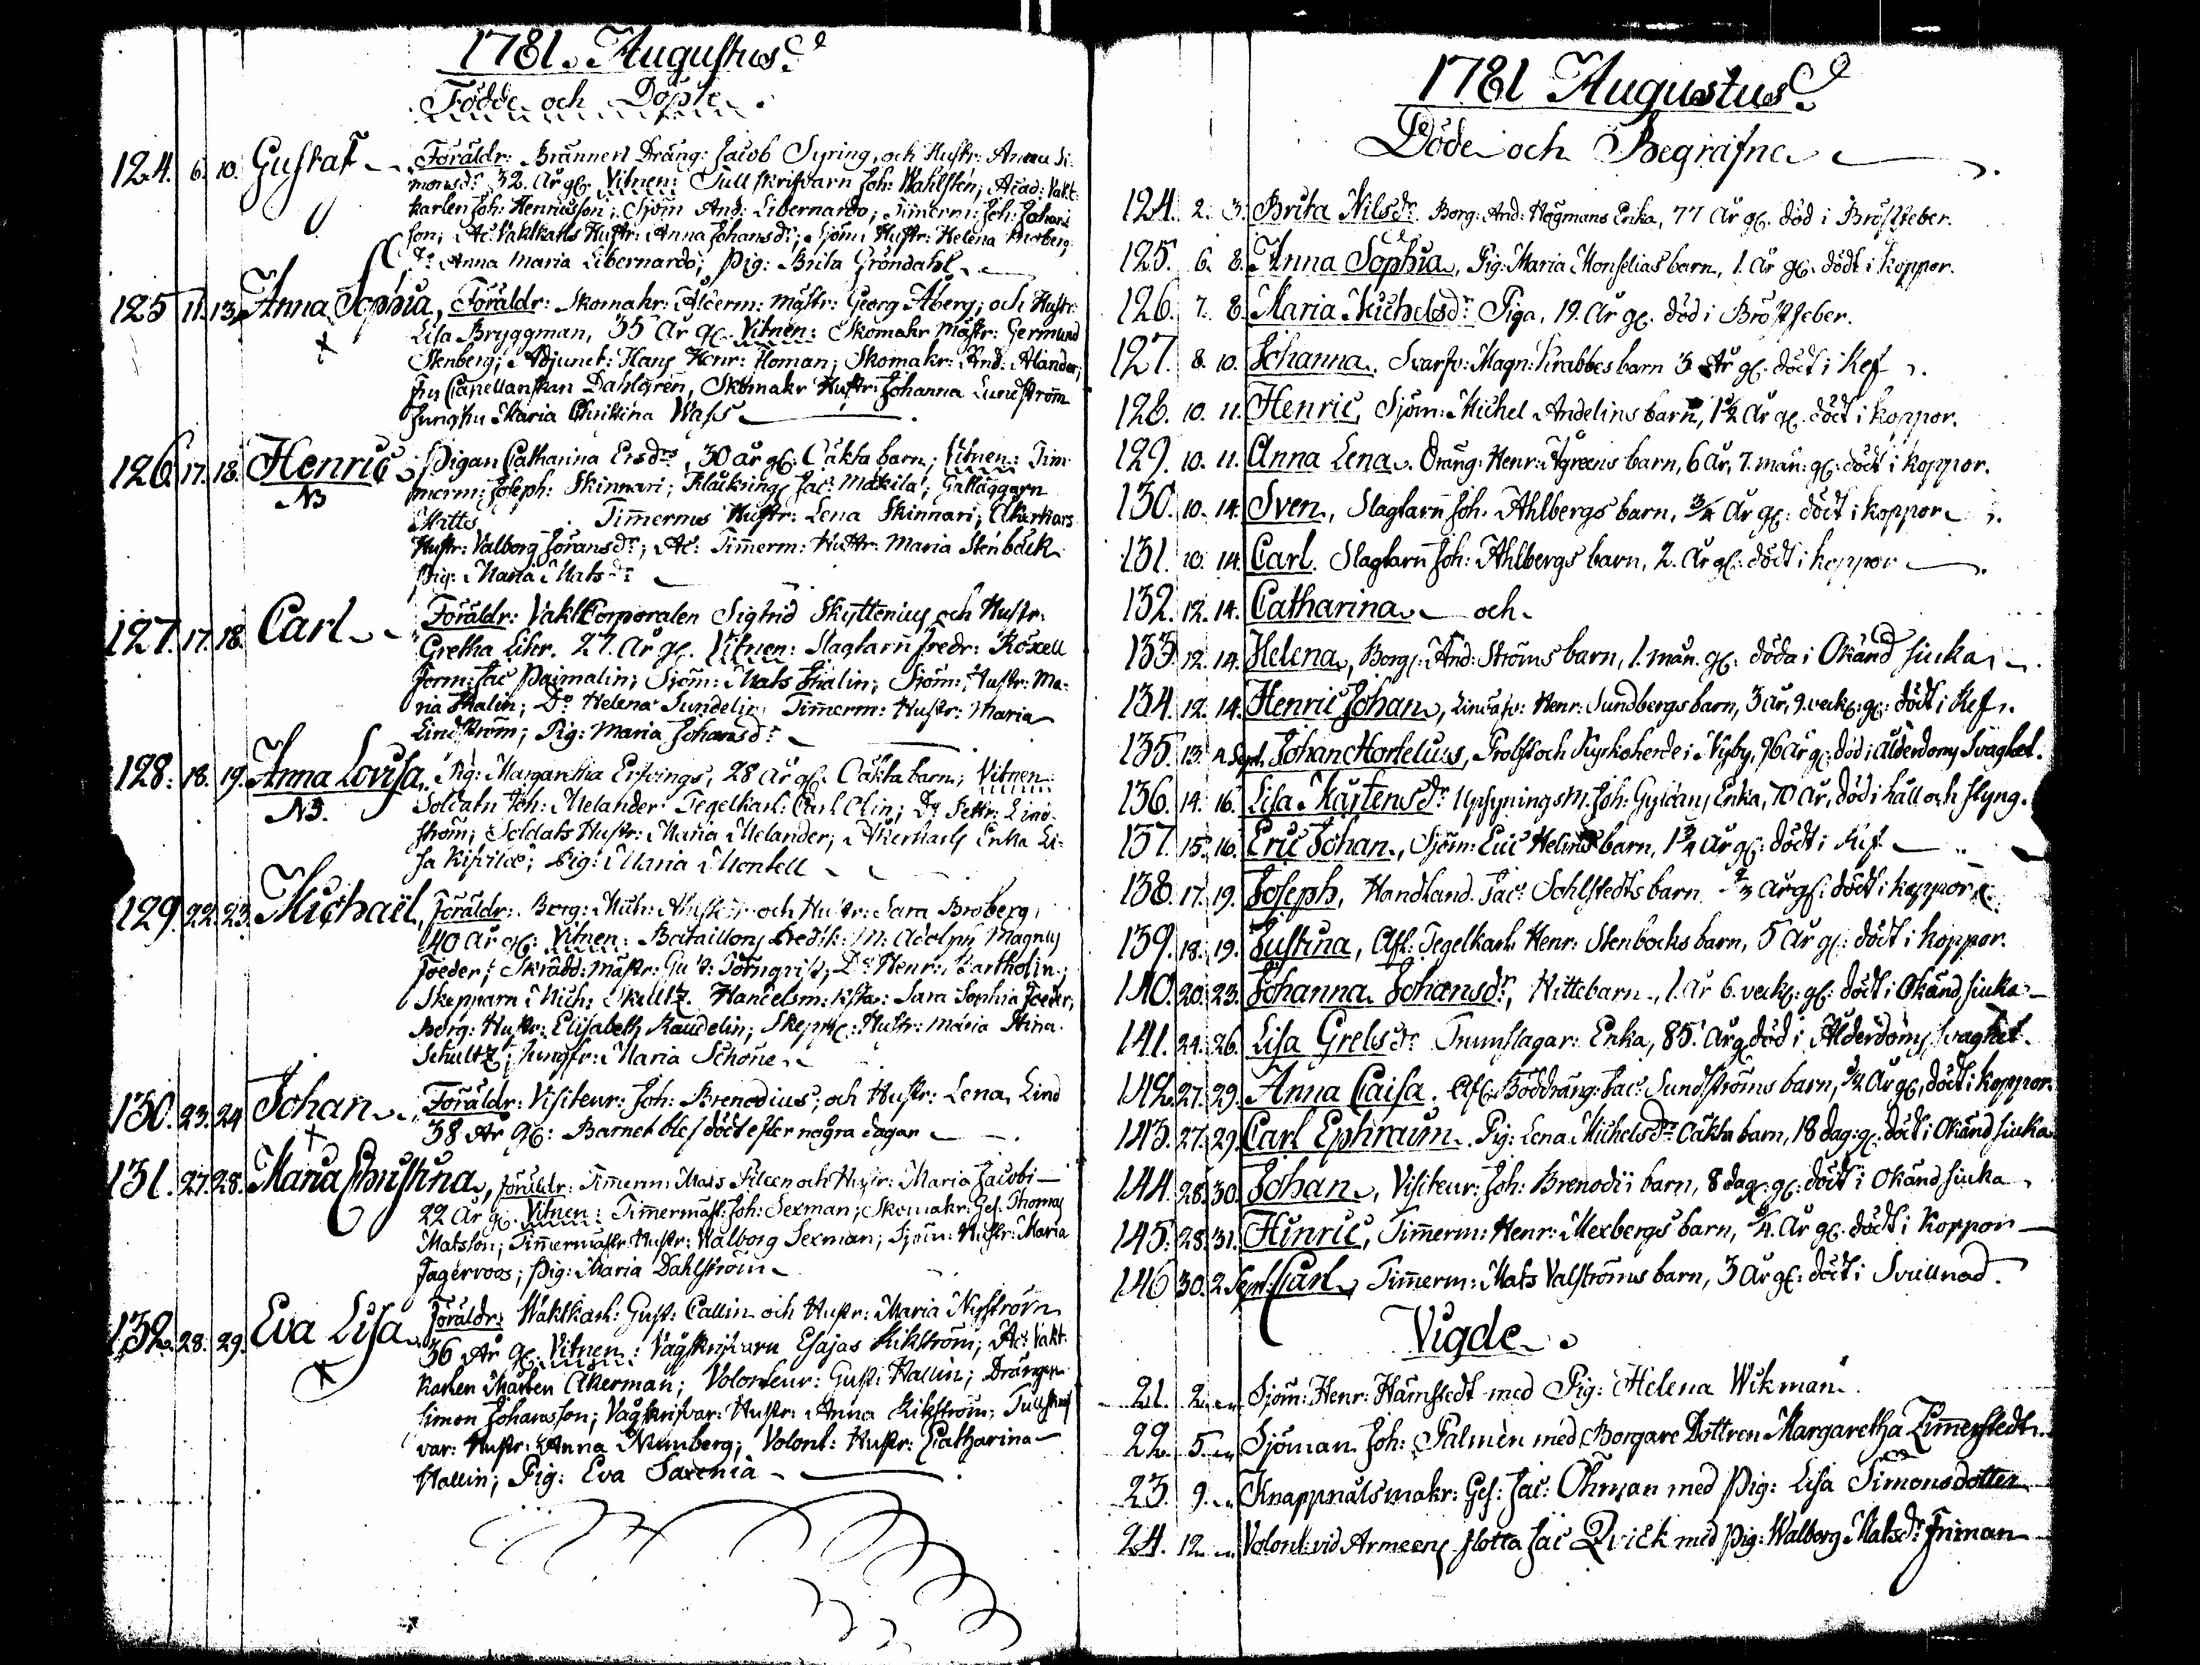 1781. Augustus.
Födde och Döpte.
124. 6. 10. Gustaf Föräldr: Brännerí Dräng: Jacob Syring, och Hustr: Anna Si-
monsdr 32. År gl. Vitnen: Tullskrifvarn Joh: Wahlsten; Acad: Vakt-
karlen Joh: Henricsson; Sjöm And: Libernardo; Timerm: Joh: Johans
son; Ac: Vaktkarls Hustr: Anna Johansdr; Sjöm: Hustr: Helena
Do Anna Maria Libernardo; Pig: Brita Gröndahl
125 11. 13. Anna Sophia, Föräldr: Skomakr: Ålderm: mästr: Georg Åberg, och Hustr:
Lisa Bryggman, 35 År gl. Vitnen: Skomakr Mästr: Germund
Stenberg; Adjunct: Hans Henr: Homan; Skomakr: And: Alander;
Fru Capellanskan Dahlgren, Skomakr Hustr: Johanna Lundström
Jungfru Maria Christina Wass
126. 17. 18. Henric Pigan Catharina Ersdr, 30 år gl: Oäkta barn; Vitnen: Tim-
NB merm: Joseph: Skinnari; Jac: Mäkilä;
Mitts Timermns Hustr: Lena Skinnari; Åkerkars
Hustr: Valborg Joransdr; Ac: Timerm: Hustr: Maria Stenbäck
Pig: Maria Matsdr
127. 17. 18. Carl Föräldr: VaktCorporalen Sigfrid Skyttenius och Hustr:
Gretha Lihr. 27. År gl. Vitnen: Slagtarn Fredr: Roxell
Jac Paimalin; Sjöm: Mats Thalin; Sjöm: Hustr: Ma-
ria Thalin; Do Helena Sundelin; Timerm: Hustr: Maria
Lindström; Pig: Maria Johansdr
128. 18. 19. Anna Lovisa, Pig: Margaretha Ervings, 28 år gl. Oäkta barn; Vitnen
NB. Soldatn Joh: Melander Tegelkarl: Carl Olin; Do Pettr: Lind-
ström; Soldats Hustr: Maria Melander; Åkerkarls Enka Li-
sa; Pig: Maria Montell
129. 22. 23. Michael, Föräldr: Borg: Mich: och Hustr: Sara Broberg,
40 År gl: Vitnen: Bataillons Predik: M: Adolph Magnus
Foeder; Skrädd: mästr: Gust: Törnqvist; Do Henr: Bartholin;
Skepparn Mich: Skultz. Handelsm: Sara Sophia Foeder,
Borg: Hustr: Elisabeth Raudelin; Skepp: Hustr: Maria Stina
Schultz; Jungfr: Maria Schöne
130. 23. 24 Johan Föräldr: Visiteur: Joh: Brenodius; och Hustr: Lena Lind
38 År gl: Barnet blef dödt efter några dagar
131. 27. 28. Maria Christina, Föräldr: Timerm: Mats Pileen och Hustr: Maria Jacobi
22 År gl. Vitnen: Timermäst: Joh: Sexman; Skomakr: Ges. Thomas
Matsson; Timermästr Hustr: Walborg Sexman; Sjöm: Hustr: Maria
Jagervoos; Pig: Maria Dahlström
132. 28. 29. Eva Lisa Föräldr: Waktkarl: Gust: Callin och Hustr: Maria Nyström
36 År gl. Vitnen: Vågskrifvarn Esajas Rikström; Ac: Vakt-
karlen Mårten Åkerman; Volonteur: Gust: Hallin; Drängen
Simon Johansson; Vågskrifvar: Hustr: Anna Rikström; Tullskrif
var: Hustr: Anna Numberg; Volont: Hustr: Catharina
Hallin; Pig: Eva Saxenia
1781 Augustus
Döde och Begrafne
124. 2. 3. Brita Nilsdr Borg: And: Högmans Enka, 77 År gl. död i Bröstfeber.
125. 6. 8. Anna Sophia, Pig: Maria Monselias barn, 1. år gl. dödt i koppor.
126. 7. 8. Maria Michelsdr Piga, 19. År gl. död i Bröstfeber.
127. 8. 10. Johanna. Svarfv: Magn: Krabbes barn 3 År gl. dödt i Kef
128. 10. 11. Henric, Sjöm: Michel Andelins barn, 1½ År gl. dödt i koppor.
129. 10. 11. Anna Lena. Dräng: Henr: Ågreens barn, 6 År, 7. mån: gl: dödt i koppor.
130. 10. 14. Sven, Slagtarn Joh. Ahlbergs barn, ¾ År gl: dödt i koppor
131. 10. 14. Carl. Slagtarn Joh: Ahlbergs barn, 2. År gl: dödt i koppor
132. 12. 14. Catharina och
133. 12. 14. Helena, Borg: And: Ströms barn, 1. mån. gl: döda i Okänd siuka
134. 12. 14. Henric Johan, Henr: Sundbergs barn, 3 år, 9. veck: gl: dödt i Kef
135. 13. 4. Sept. Johan Hortelius, Prosten och Kyrkoherde i Nyby, 76 år gl: död i Ålderdoms Svaghet.
136. 14. 16. Lisa Mårtensdr Upsyningsm. Joh: Gyldans Enka, 70 År, död i håll och styng.
137. 15. 16. Eric Johan, Sjöm: Eric Helins barn, 1¾ År gl: dödt i Kef
138. 17. 19. Joseph, Handtland. Jac: Sohlstedts barn år gl: dödt i koppor
139. 18. 19. Justina, Afl: Tegelkarls Henr: Stenbocks barn, 5 År gl: dödt i koppor.
140. 20. 23. Johanna Johansdr, Hittebarn, 1. År 6. veck: gl: dödt i Okänd siuka
141. 24. 26. Lisa Grelsdr Trumslagar: Enka, 85. År gl död i Ålderdoms svaghet.
142. 27. 29. Anna Caisa. Afl: Boddräng: Jac: Sundströms barn, ½ År gl, dödt i koppor
143. 27. 29. Carl Ephraim. Pig: Lena Michelsdr Oäkta barn, 18 dag: gl. dödt i Okänd siuka
144. 28. 30. Johan, Visiteur: Joh: Brenodii barn, 8 dag: gl: dödt i Okänd siuka
145. 28. 31. Hinric, Timerm: Henr: Mexbergs barn, ¾. År gl: dödt i Koppor
146 30. 2 Sept: Carl, Timerm: Mats Valströms barn, 3 År gl: dödt i Svullnad.
Vigde
21. 2. Sjöm: Henr: Hamstedt med Pig: Helena Wikman.
22. 5. Sjöman Joh: Palmén med Borgare Dottren Margaretha Zimerstedt
23. 9. Knappnålsmakr: Ges: Jac: Öhman med Pig: Lisa Simonsdotter
24. 12. Volont: vid Armeens flotta Jac Qvick med Pig: Walborg Matsdr Friman